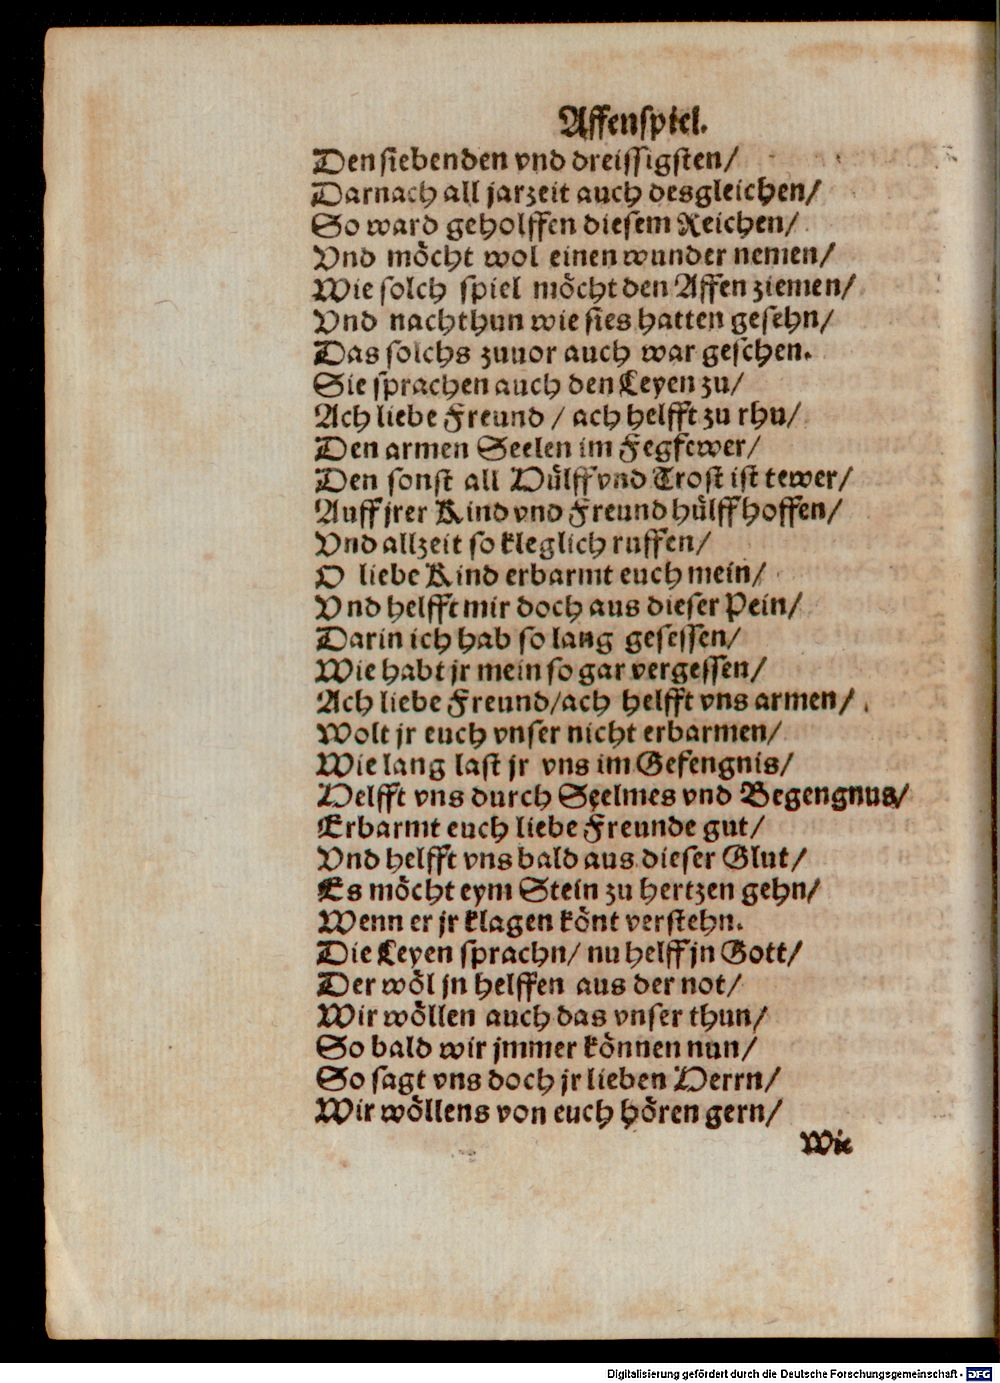 Affenspiel.
Den siebenden vnd dreissigsten/
Darnach all jarzeit auch desgleichen/
So ward geholffen diesem Reichen/
Vnd möcht wol einen wunder nemen/
Wie solch spiel möcht den Affen ziemen/
Vnd nachthun wie sies hatten gesehn/
Das solchs zuuor auch war geschen.
Sie sprachen auch den Leyen zu/
Ach liebe Freund / ach helfft zu rhu/
Den armen Seelen im Fegfewer/
Den sonst all Hülff vnd Trost ist tewer/
Auff jrer Kind vnd Freund hülff hoffen/
Vnd allzeit so kleglich ruffen/
O liebe Kind erbarmt euch mein/
Vnd helfft mir doch aus dieser Pein/
Darin ich hab so lang gesessen/
Wie habt jr mein so gar vergessen/
Ach liebe Freund/ach helfft vns armen/
Wolt jr euch vnser nicht erbarmen/
Wie lang last jr vns im Gefengnis/
Helfft vns durch Seelmes vnd Begengnus/
Erbarmt euch liebe Freunde gut/
Vnd helfft vns bald aus dieser Glut/
Es möcht eym Stein zu hertzen gehn/
Wenn er jr klagen könt verstehn.
Die Leyen sprachn/ nu helff jn Gott/
Der wöl jn helffen aus der not/
Wir wöllen auch das vnser thun/
So bald wir jmmer können nun/
So sagt vns doch jr lieben Herrn/
Wir wöllens von euch hören gern/
Wie
Digitalisierung gefördert durch die Deutsche Forschungsgemeinschaft - DFG